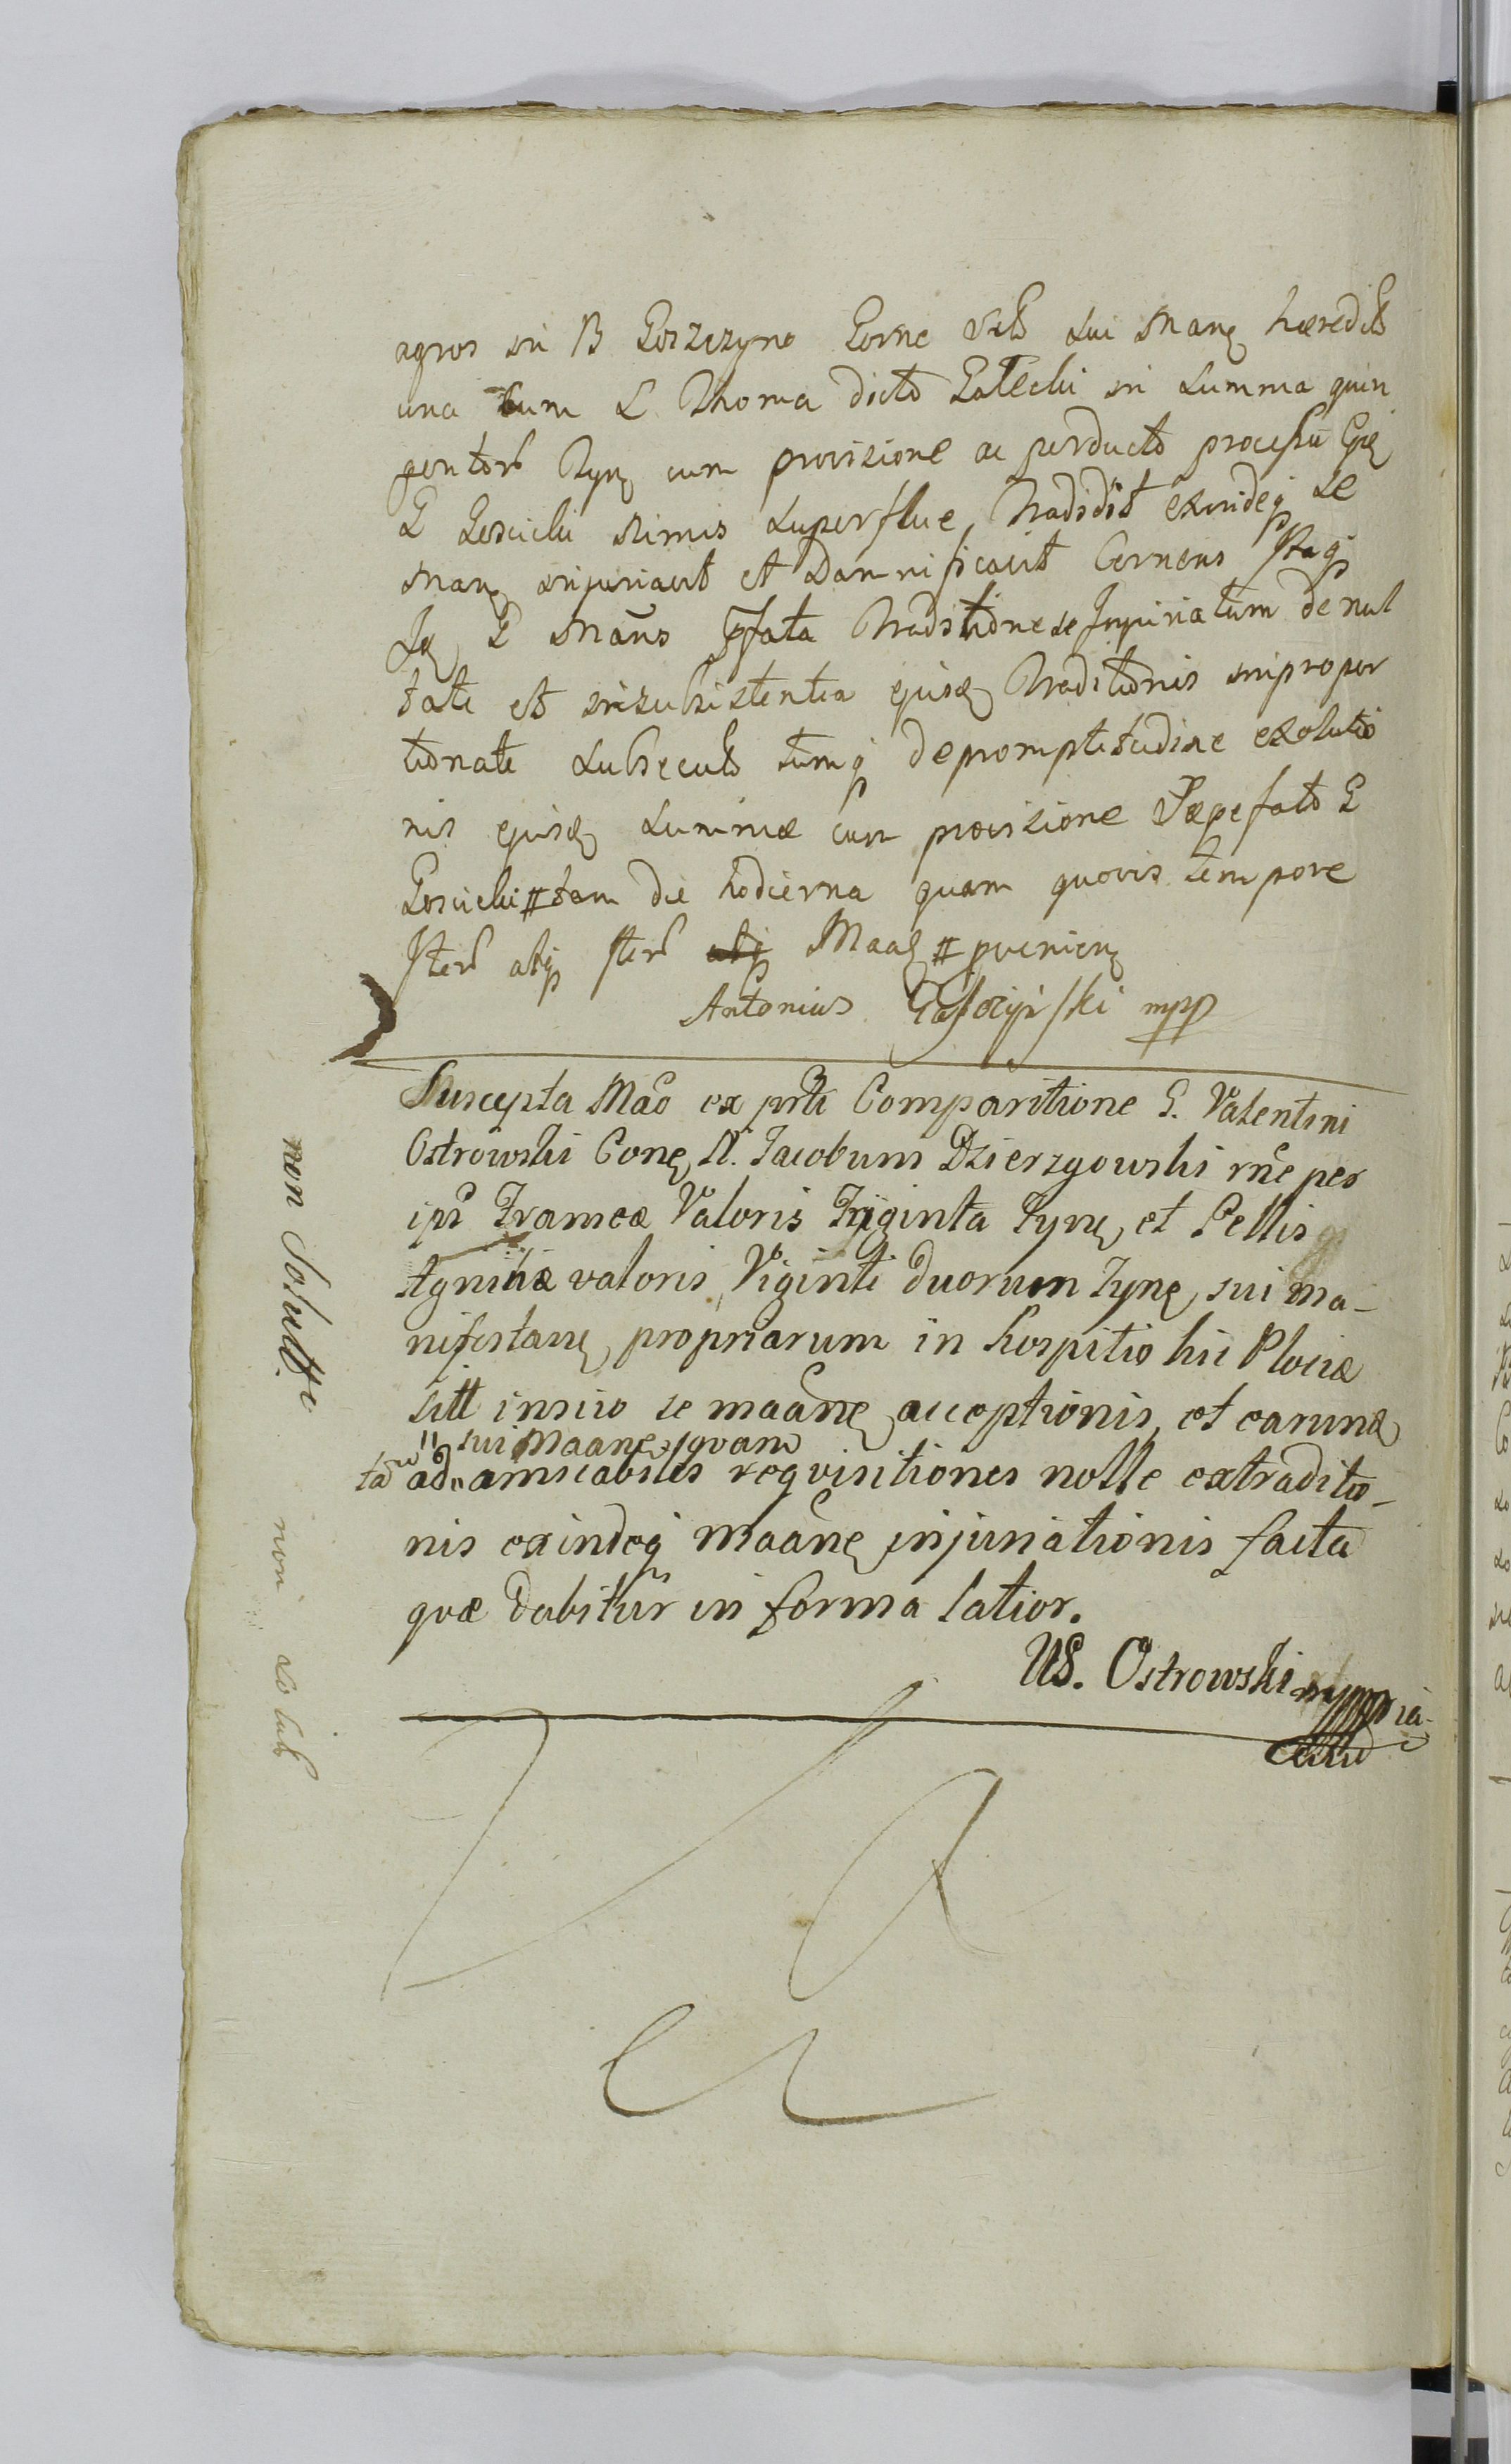 agros in B Goszczyno Gorne sui Manę hæredit
una cum L Thoma dicto Gałecki in summa quin
gentor Tynę cum provisione ac perducto processu
G Gościcki nimis superflue tradidit exindeq se
Manę injuriavit et damnificavit Cernens Itaq
Idę G Mans pfata Traditione se Injuriatum de nul
tate et insubsistentia ejusdę Traditionis impropor
tionate subsecuto tumq de promptitudine exolutio
nis ejusdę summæ cum provisione Sæpefato G
Gościcki # tam die hodierna quam quovis tempore
Iter atq Iter atq Maaę # pvenienę
Antonius mpp
Suscepta Mao ex prti Comparitione G. Valentini
Ostrowski Conę N. Jacobum Dzierzgowski rne per
ipm Frameæ Valoris Triginta Tynę, et Pellis
Agninæ valoris Viginti duorum Tynę, sui ma-
nifestanę propriarum in hospitio hic Plociæ
sitt inscio se maane acceptionis, et earundę
sui Maanę, quam
ta ad amicabiles reqvisitiones nolle extraditio-
nis exindeq maanę injuriationis facta
qvæ dabitur in forma latior.
VS. Ostrowski mppria
non Soluit
non soluit